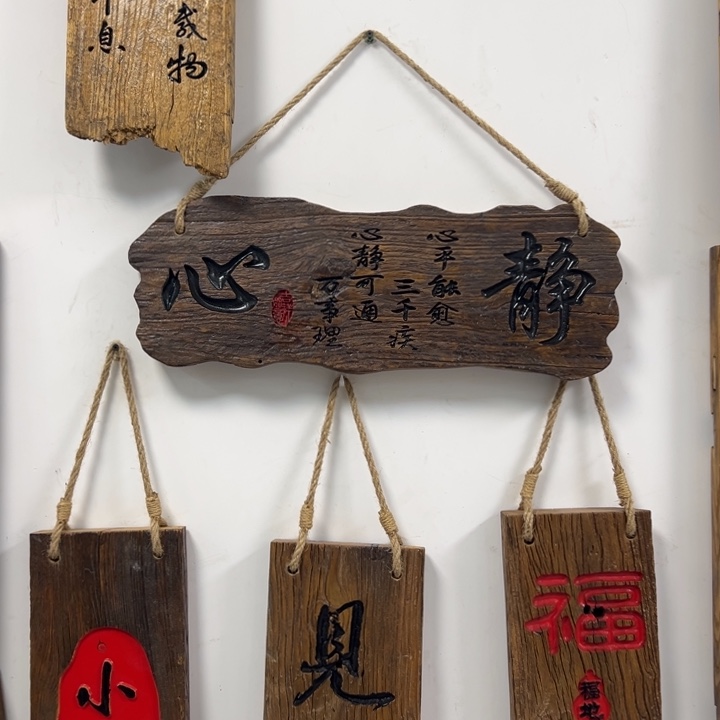 載物
息
静
心平能愈
三千疾
心静可通
万事理
心
小
見
福
福地